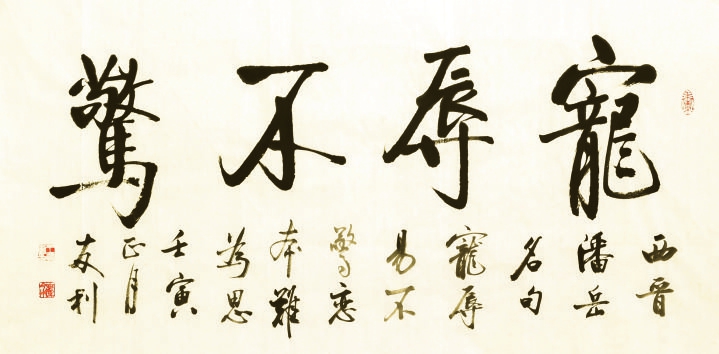 寵辱不驚
西晋
潘岳
名句
寵辱
易不
驚恋
本難
為思
壬寅
正月
友利